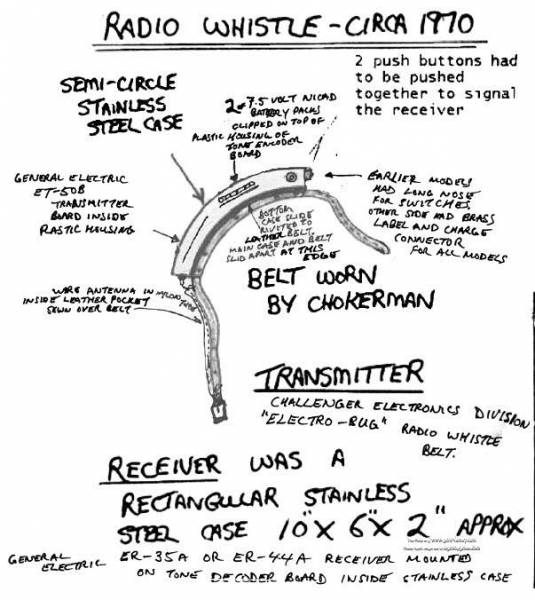 RADIO WHISTLE - CIRCA 1970
2 push buttons had
to be pushed
together to signal
the receiver
SEMI-CIRCLE
STAINLESS
STEEL CASE
2- 7.5 VOLT NICAD
BATTERY PACKS
CLIPPED ON TOP OF
PLASTIC HOUSING OF
TONE ENCODER
BOARD
GENERAL ELECTRIC
ET-50B
TRANSMITTER
BOARD INSIDE
PLASTIC HOUSING
EARLIER MODELS
HAD LONG NOSE
FOR SWITCHES
OTHER SIDE HAD BRASS
LABEL AND CHARGE
CONNECTOR
FOR ALL MODELS
BOTTOM
CASE SLIDE
RIVITED TO
LEATHER BELT.
MAIN CASE AND BELT
SLID APART AT THIS
EDGE
WIRE ANTENNA IN NYLON TUBE
INSIDE LEATHER POCKET
SEWN OVER BELT
BELT WORN
BY CHOKERMAN
TRANSMITTER
CHALLENGER ELECTRONICS DIVISION
"ELECTRO-BUG" RADIO WHISTLE
BELT.
RECEIVER WAS A
RECTANGULAR STAINLESS
STEEL CASE 10" X 6" X 2" APPROX
GENERAL ELECTRIC ER-35A OR ER-44A RECEIVER MOUNTED
ON TONE DECODER BOARD INSIDE STAINLESS CASE